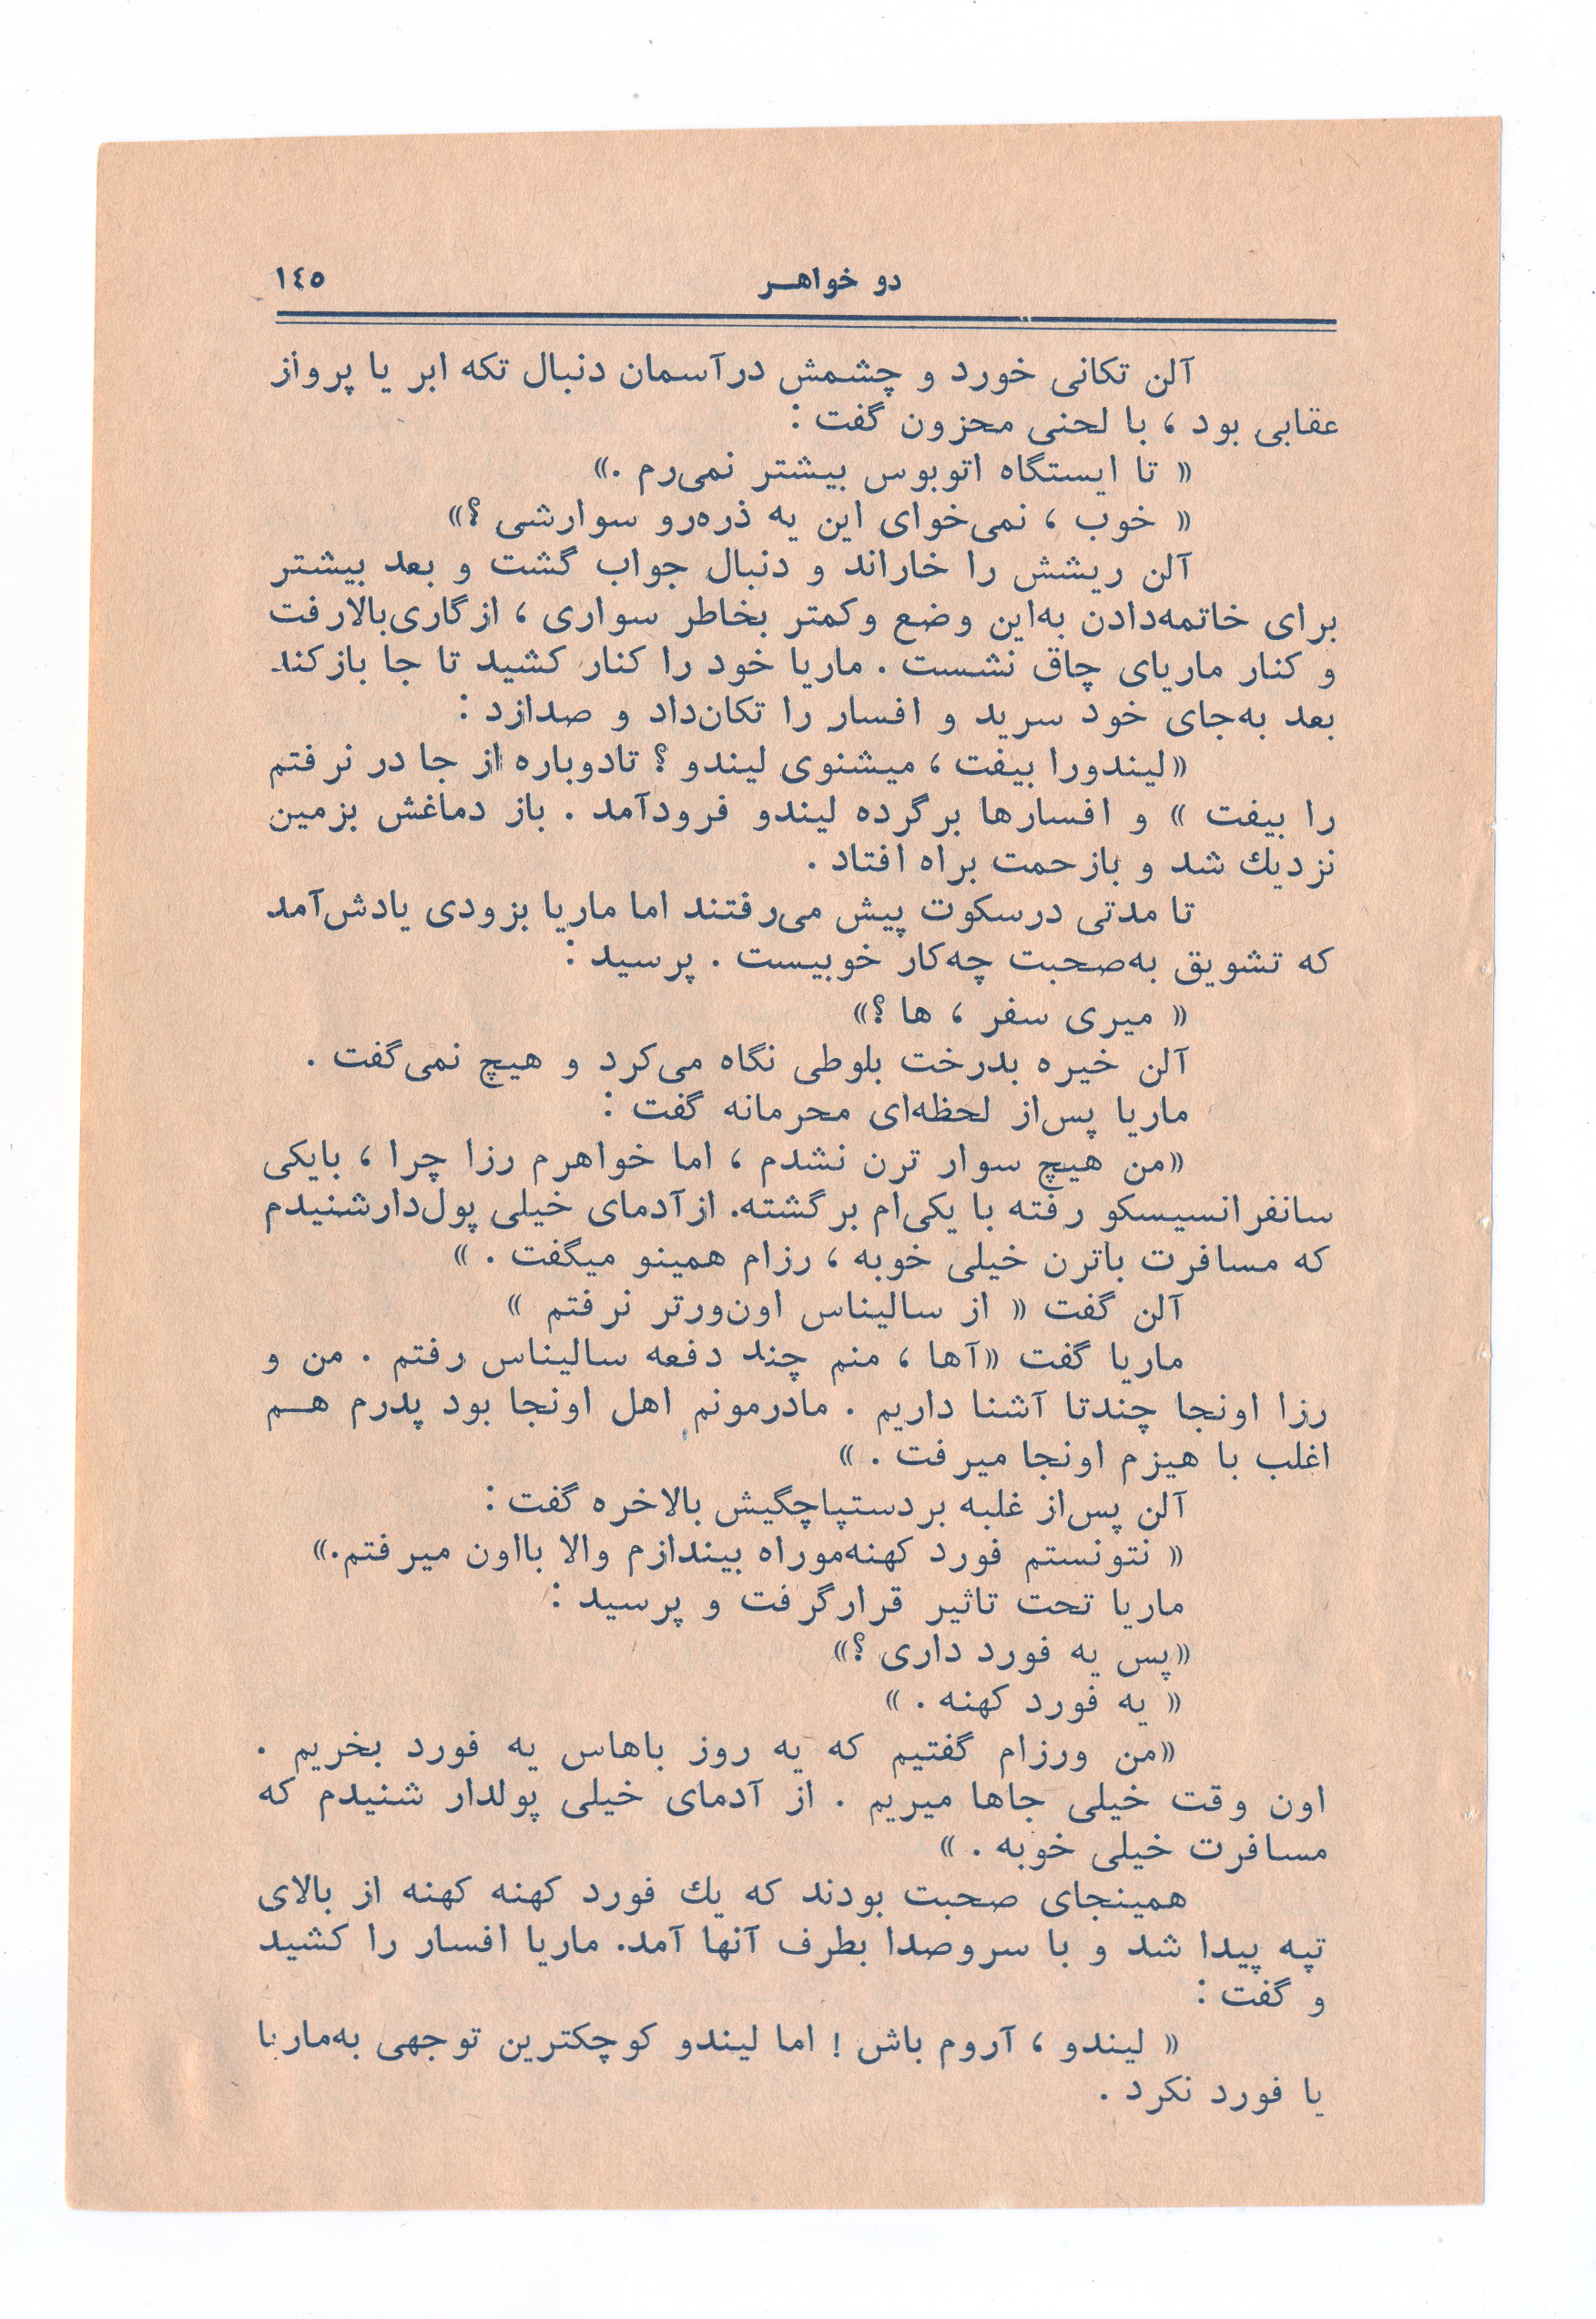 دو خواهر ١٤٥
آلن تکانی خورد و چشمش درآسمان دنبال تکه ابر یا پرواز
عقابی بود ، با لحنی محزون گفت :
« تا ایستگاه اتوبوس بیشتر نمی‌رم .»
« خوب ، نمی‌خوای این یه ذره‌رو سوارشی ؟»
آلن ریشش را خاراند و دنبال جواب گشت و بعد بیشتر
برای خاتمه‌دادن به‌این وضع وکمتر بخاطر سواری ، ازگاری‌بالارفت
و کنار ماریای چاق نشست . ماریا خود را کنار کشید تا جا بازکند
بعد به‌جای خود سرید و افسار را تکان‌داد و صدازد :
«لیندورا بیفت ، میشنوی لیندو ؟ تادوباره از جا در نرفتم
را بیفت » و افسارها برگرده لیندو فرودآمد . باز دماغش بزمین
نزدیك شد و بازحمت براه افتاد .
تا مدتی درسکوت پیش می‌رفتند اما ماریا بزودی یادش‌آمد
که تشویق به‌صحبت چه‌کار خوبیست . پرسید :
« میری سفر ، ها ؟»
آلن خیره بدرخت بلوطی نگاه می‌کرد و هیچ نمی‌گفت .
ماریا پس‌از لحظه‌ای محرمانه گفت :
«من هیچ سوار ترن نشدم ، اما خواهرم رزا چرا ، بایکی
سانفرانسیسکو رفته با یکی‌ام برگشته. ازآدمای خیلی پول‌دارشنیدم
که مسافرت باترن خیلی خوبه ، رزام همینو میگفت . »
آلن گفت « از سالیناس اون‌ورتر نرفتم »
ماریا گفت «آها ، منم چند دفعه سالیناس رفتم . من و
رزا اونجا چندتا آشنا داریم . مادرمونم اهل اونجا بود پدرم هم
اغلب با هیزم اونجا میرفت . »
آلن پس‌از غلبه بردستپاچگیش بالاخره گفت :
« نتونستم فورد کهنه‌موراه بیندازم والا بااون میرفتم.»
ماریا تحت تاثیر قرارگرفت و پرسید :
«پس یه فورد داری ؟»
« یه فورد کهنه . »
«من ورزام گفتیم که یه روز باهاس یه فورد بخریم .
اون وقت خیلی جاها میریم . از آدمای خیلی پولدار شنیدم که
مسافرت خیلی خوبه . »
همینجای صحبت بودند که یك فورد کهنه کهنه از بالای
تپه پیدا شد و با سروصدا بطرف آنها آمد. ماریا افسار را کشید
و گفت :
« لیندو ، آروم باش ! اما لیندو کوچکترین توجهی به‌ماریا
یا فورد نکرد .